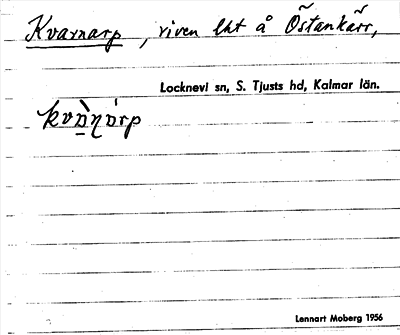 Kvarnarp, riven lht å Östankärr,
Locknevi sn, S. Tjusts hd, Kalmar län.
Lennart Moberg 1956